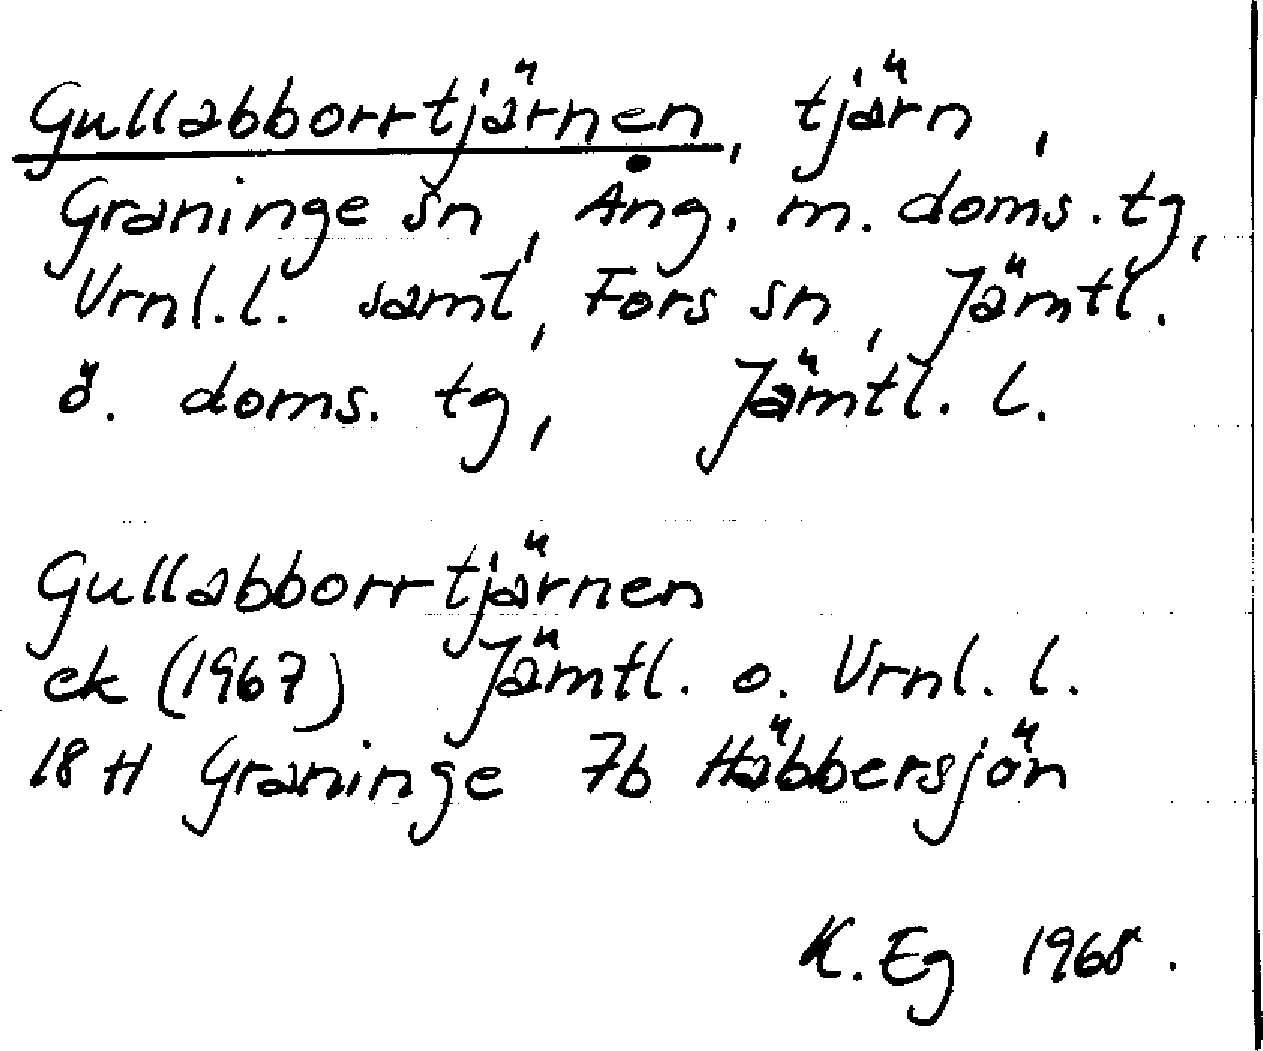 Gullabborrtjärnen, tjärn,
Graninge sn, Ång. m. doms. tg,
Vrnl. l. samt, Fors sn, Jämtl.
ö. doms. tg, Jämtl. l.
Gullabborrtjärnen
ek (1967) Jämtl. o. Vrnl. l.
18 H Graninge 7b Häbbersjön
K. Eg 1968.